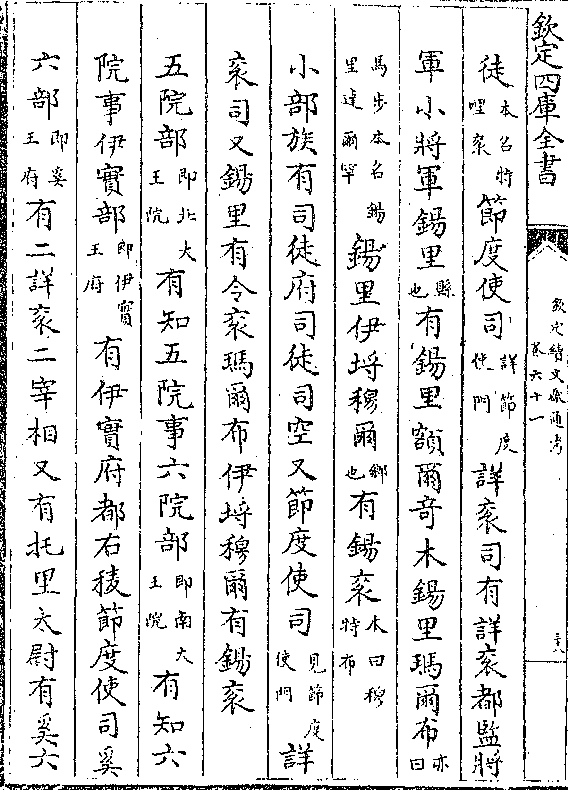 欽定四庫全書
欽定續文獻通考
卷六十一
三八
徒本名特哩衮節度使司詳節度使門詳衮司有詳衮都監將
軍小將軍錫里縣也有錫里額爾竒木錫里瑪爾布亦曰
馬步本名錫里達爾罕錫里伊埒穆爾鄉也有錫衮本曰穆特布
小部族有司徒府司徒司空又節度使司見節度使門詳
衮司又錫里有令衮瑪爾布伊埒穆爾有錫衮
五院部即北大王院有知五院事六院部即南大王院有知六
院事伊實部即伊實王府有伊實府都右稜節度使司奚
六部即奚王府有二詳衮二宰相又有托里太尉有奚六